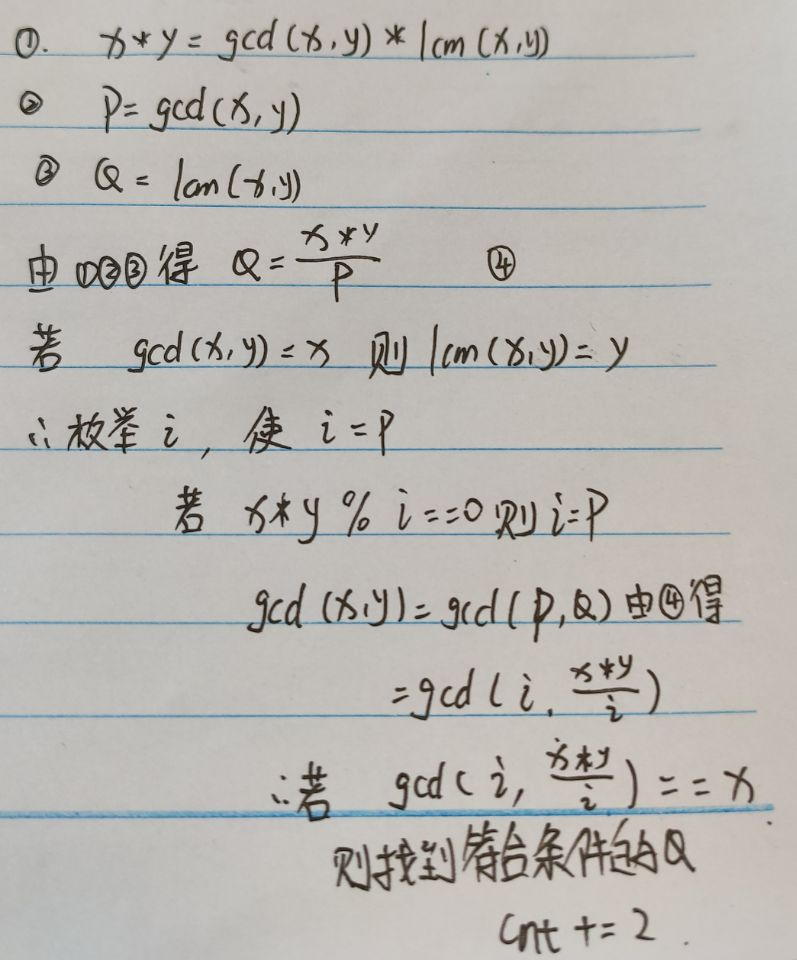 ①. x*y=gcd(x,y)*lcm(x,y)
② P=gcd(x,y)
③ Q=lcm(x,y)
由①②③得 Q=\frac{x*y}{P} ④
若 gcd(x,y)=x 则 lcm(x,y)=y
∴枚举 i, 使 i=P
若 x*y % i==0 则 i=P
gcd(x,y)=gcd(P,Q) 由④得
=gcd(i, \frac{x*y}{i})
∴若 gcd(i, \frac{x*y}{i})==x
则找到符合条件的Q
cnt += 2.